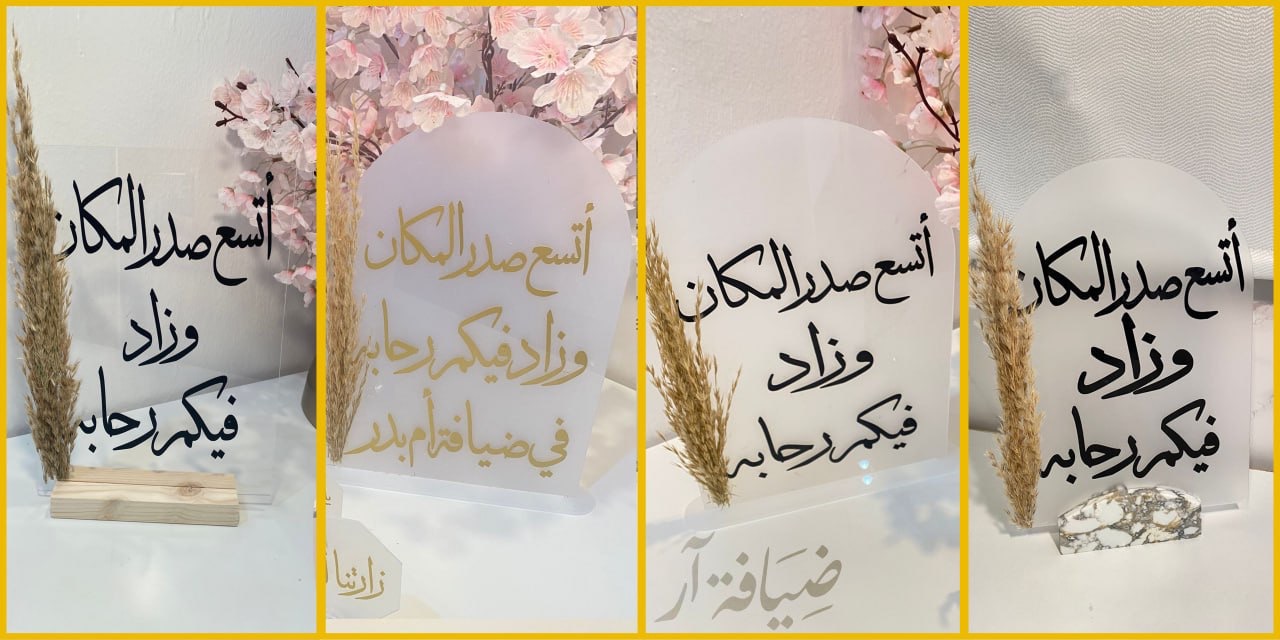 أتسع صدر المكان
وزاد
فيكم رحابه
أتسع صدر المكان
وزاد فيكم رحابه
في ضيافة أم بدر
زارتنا
أتسع صدر المكان
وزاد
فيكم رحابه
ضِيَافة آر
أتسع صدر المكان
وزاد
فيكم رحابه